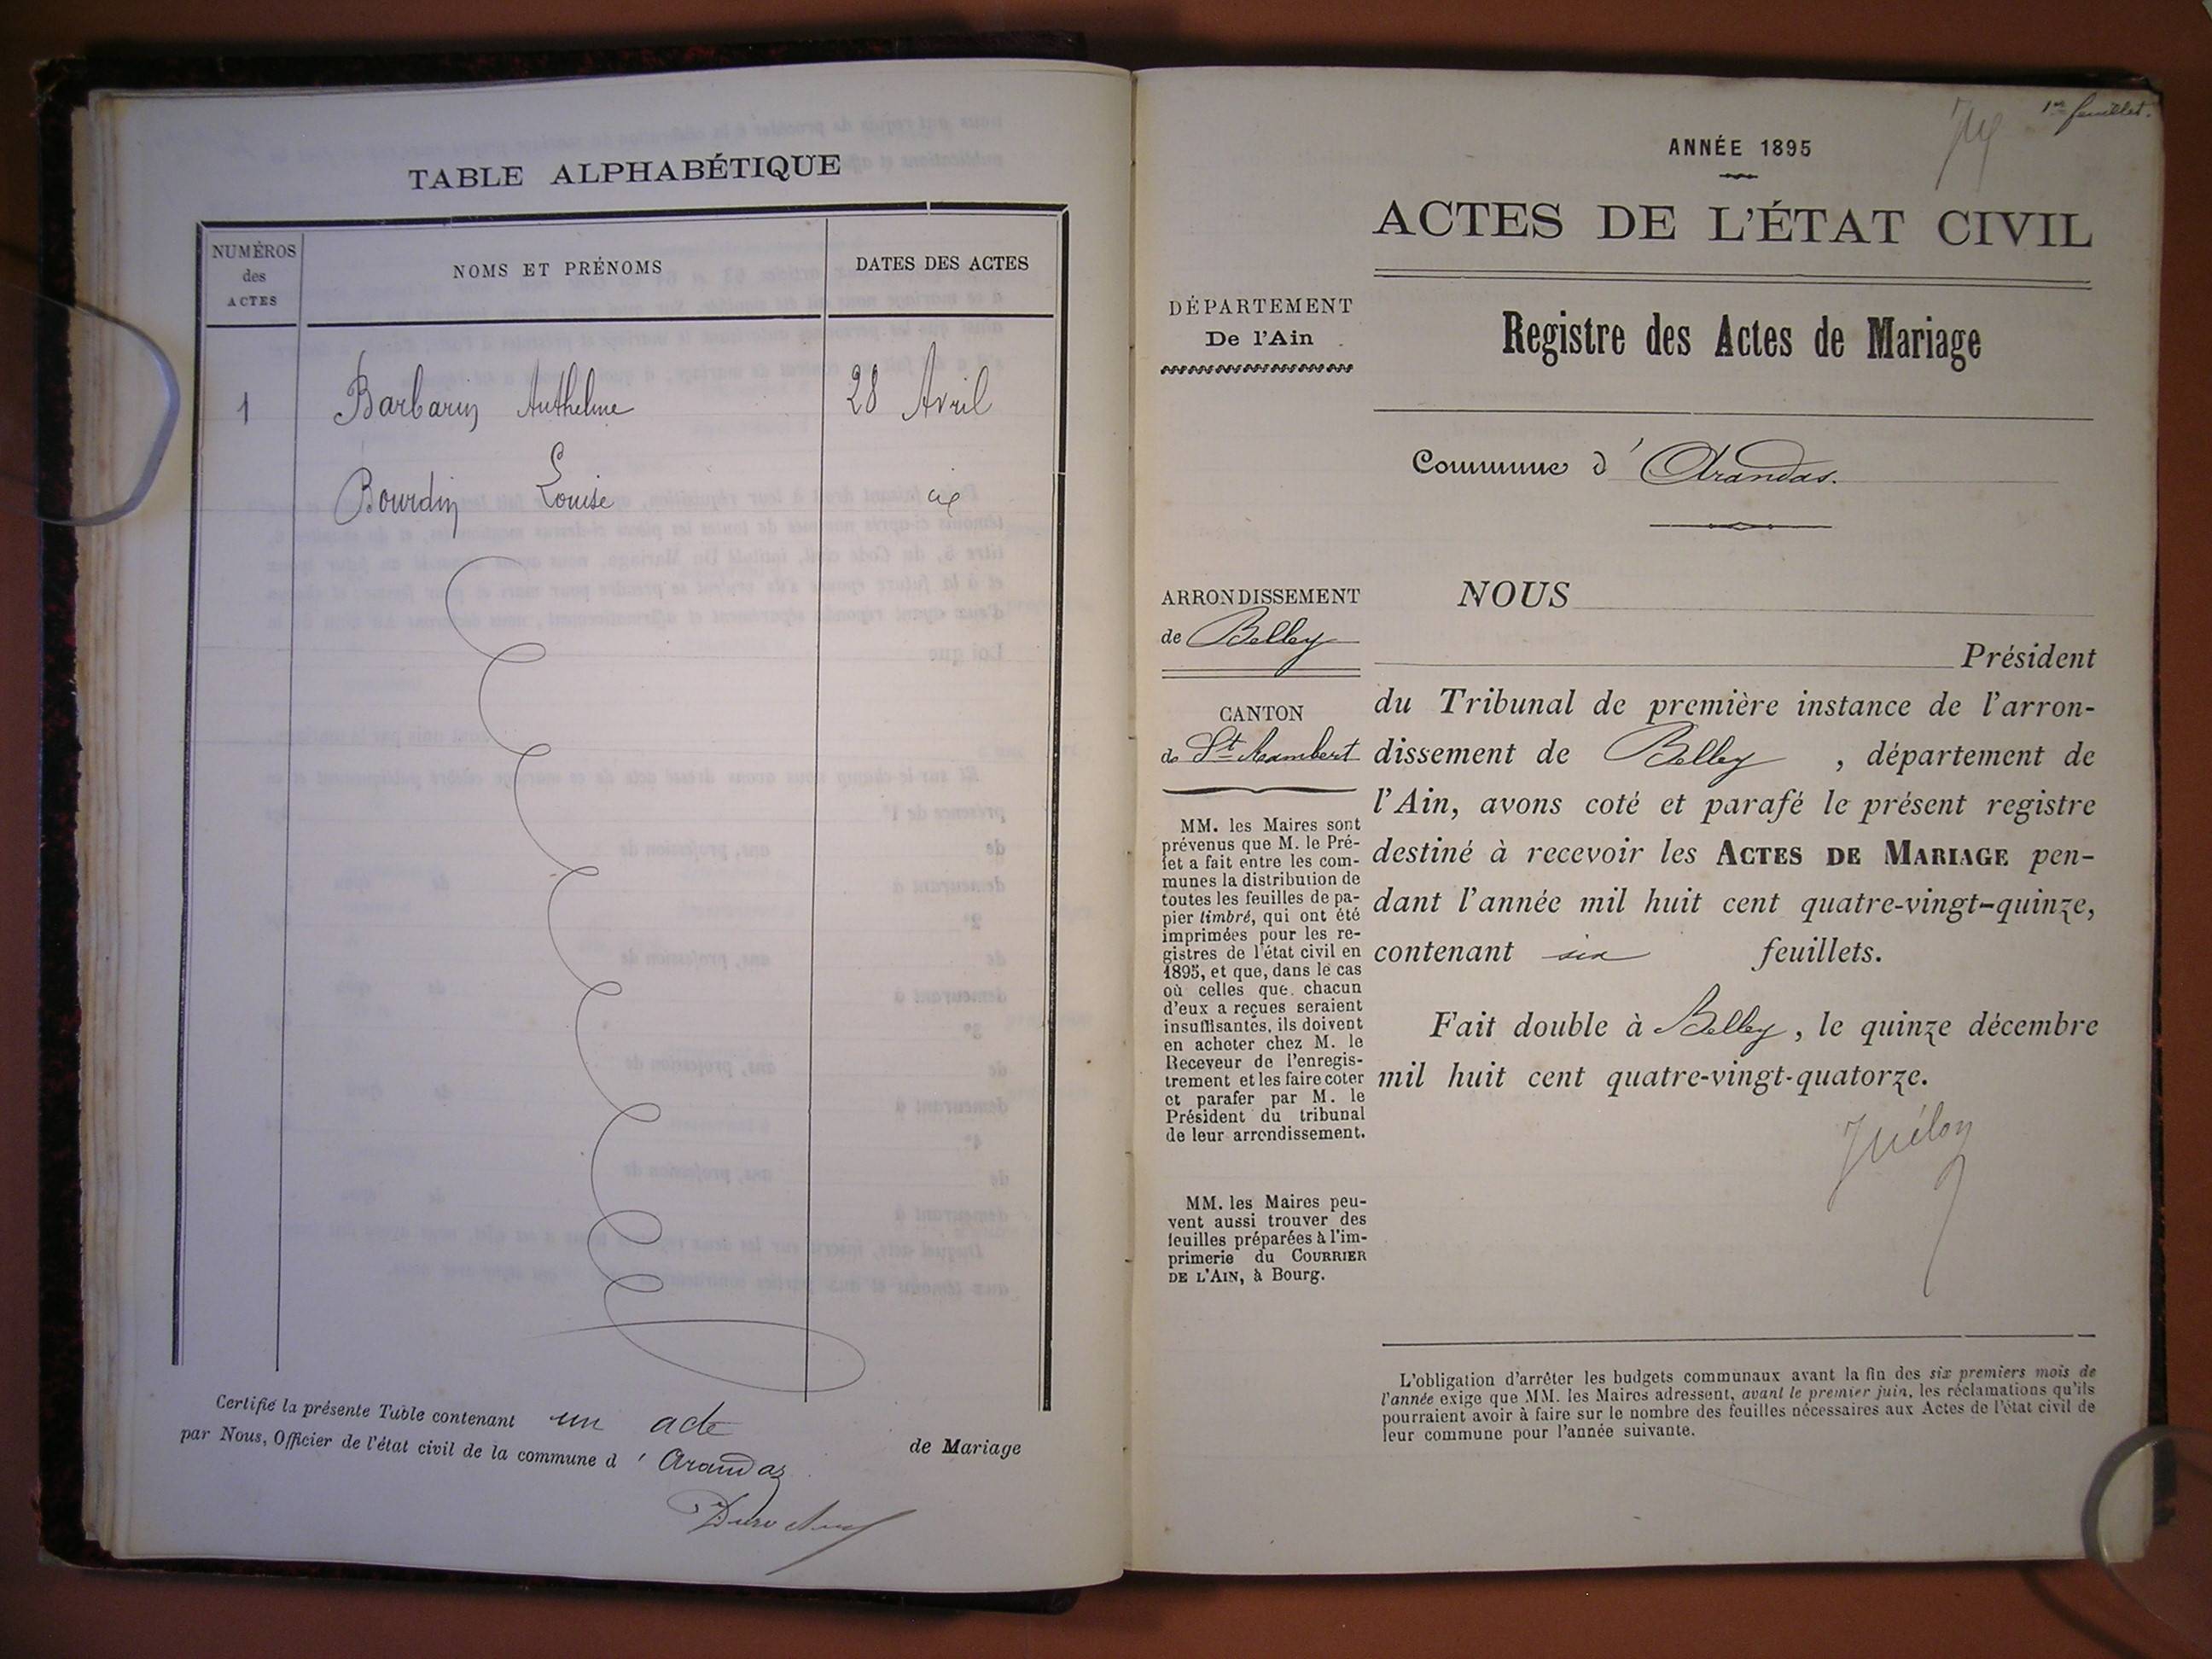 TABLE ALPHABÉTIQUE
NUMÉROS
des
ACTES
NOMS ET PRÉNOMS
DATES DES ACTES
1 Barbarin Anthelme 28 Avril
Bourdin Louise
Certifié la présente Table contenant un acte de Mariage
par Nous, Officier de l'état civil de la commune d' Arandas
1er feuillet.
ANNÉE 1895
ACTES DE L'ÉTAT CIVIL
DÉPARTEMENT
De l'Ain
Registre des Actes de Mariage
Commune d' Arandas.
ARRONDISSEMENT
de Belley
CANTON
de St Rambert
MM. les Maires sont
prévenus que M. le Pré-
fet a fait entre les com-
munes la distribution de
toutes les feuilles de pa-
pier timbré, qui ont été
imprimées pour les re-
gistres de l'état civil en
1895, et que, dans le cas
où celles que chacun
d'eux a reçues seraient
insuffisantes, ils doivent
en acheter chez M. le
Receveur de l'enregis-
trement et les faire coter
et parafer par M. le
Président du tribunal
de leur arrondissement.
MM. les Maires peu-
vent aussi trouver des
feuilles préparées à l'im-
primerie du COURRIER
DE L'AIN, à Bourg.
NOUS
Président
du Tribunal de première instance de l'arron-
dissement de Belley , département de
l'Ain, avons coté et parafé le présent registre
destiné à recevoir les ACTES DE MARIAGE pen-
dant l'année mil huit cent quatre-vingt-quinze,
contenant six feuillets.
Fait double à Belley, le quinze décembre
mil huit cent quatre-vingt-quatorze.
L'obligation d'arrêter les budgets communaux avant la fin des six premiers mois de
l'année exige que MM. les Maires adressent, avant le premier juin, les réclamations qu'ils
pourraient avoir à faire sur le nombre des feuilles nécessaires aux Actes de l'état civil de
leur commune pour l'année suivante.